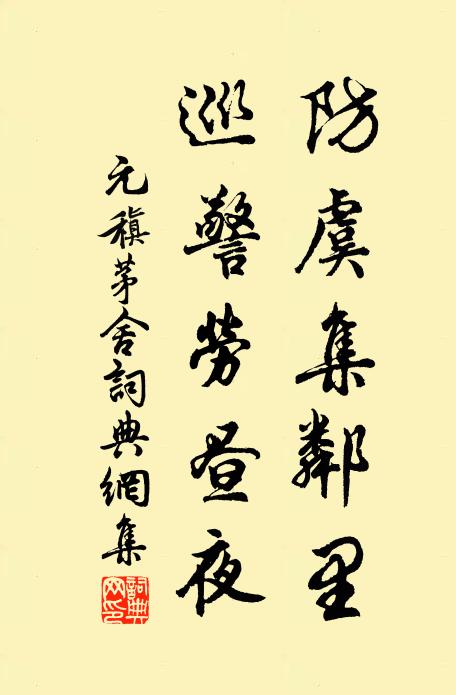 防虞集鄰里
巡警勞昼夜
元稹茅舍詞典網集
詞典网印